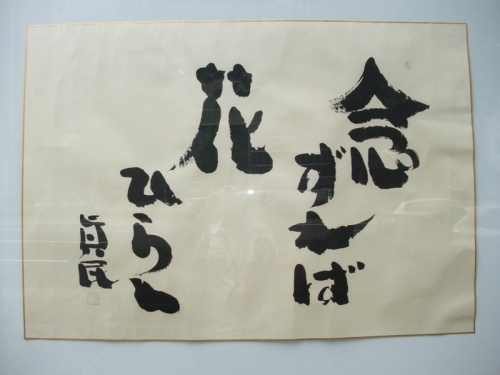 念ずれば
花
ひらく
真民